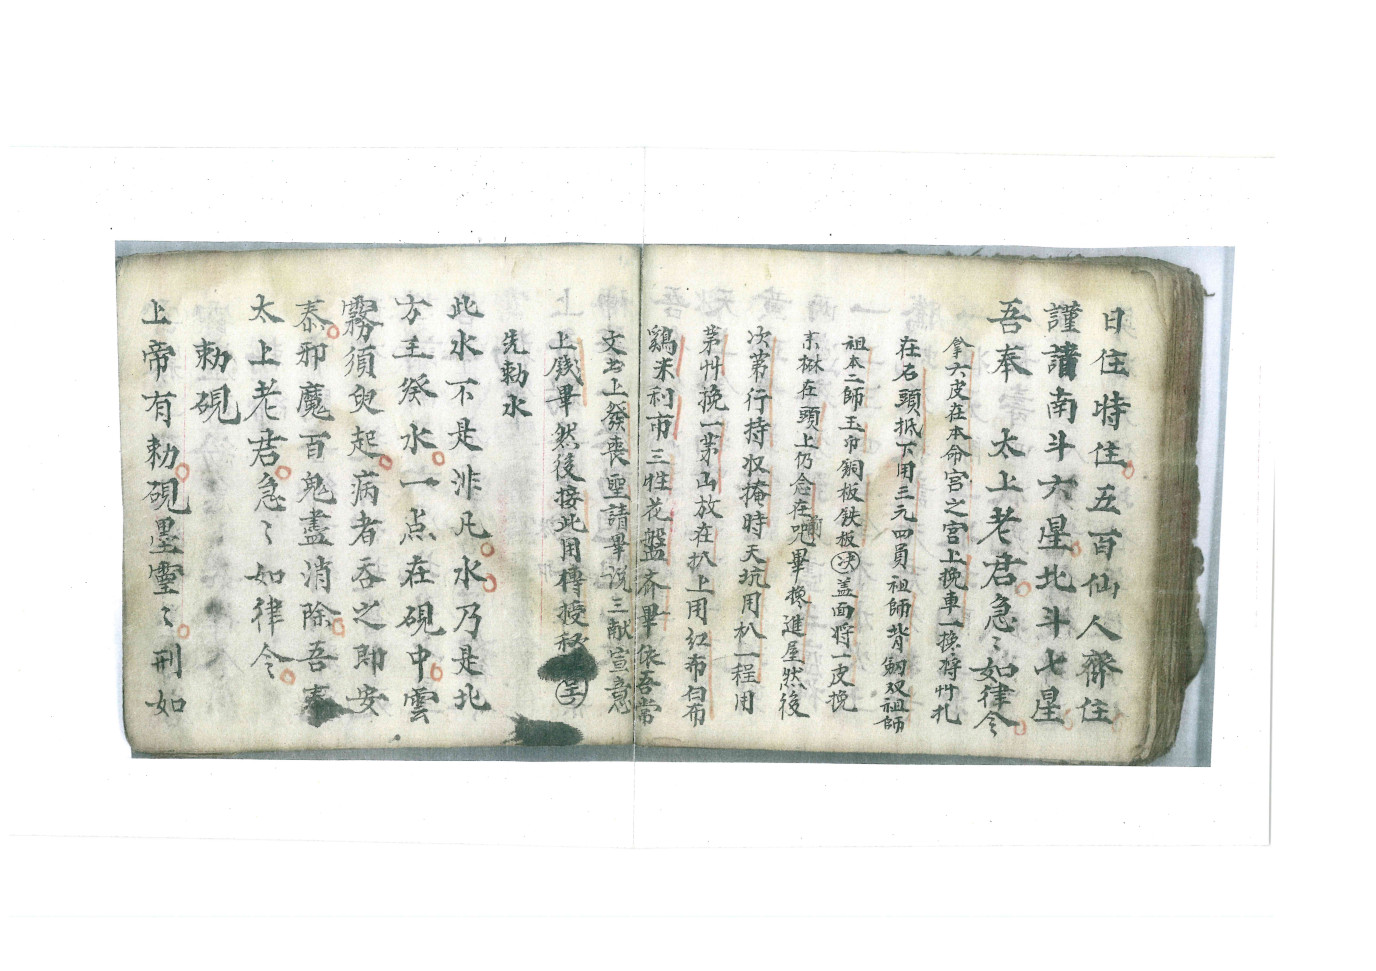 日住時住五百仙人齊住
謹請南斗六星北斗七星
吾奉太上老君急〻如律令
拿六皮在本命宮之宮上挽車一換將艸札
在石頭抵下用三元四員祖師背劒双祖師
祖本二師玉巾銅板鉄板決盖面将一皮挽
來楙在頭上仍念在呪畢換進屋然後
次第行持収掩時天坑用朳一程用
第艸挽一第山放在扒上用紅布白布
鷄米利市三牲花盤齐畢依吾常
文书上發丧聖請畢说三献宣意
上錢畢然後接此用轉授秘
先勅水
此水不是非凡水乃是北
方壬癸水一点在硯中雲
霧須臾起病者吞之即安
泰邪魔百鬼盡消除吾奉
太上老君急〻如律令
勅硯
上帝有勅硯墨靈〻刑如